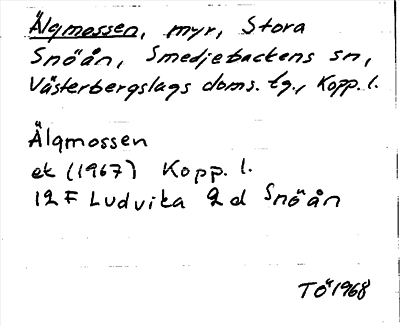 Älgmossen, myr, Stora
Snöån, Smedjebackens sn,
Västerbergslags doms. tg., Kopp. l.
Älgmossen
ek (1967) Kopp. l.
12 F Ludvika 2 d Snöån
TÖ 1968